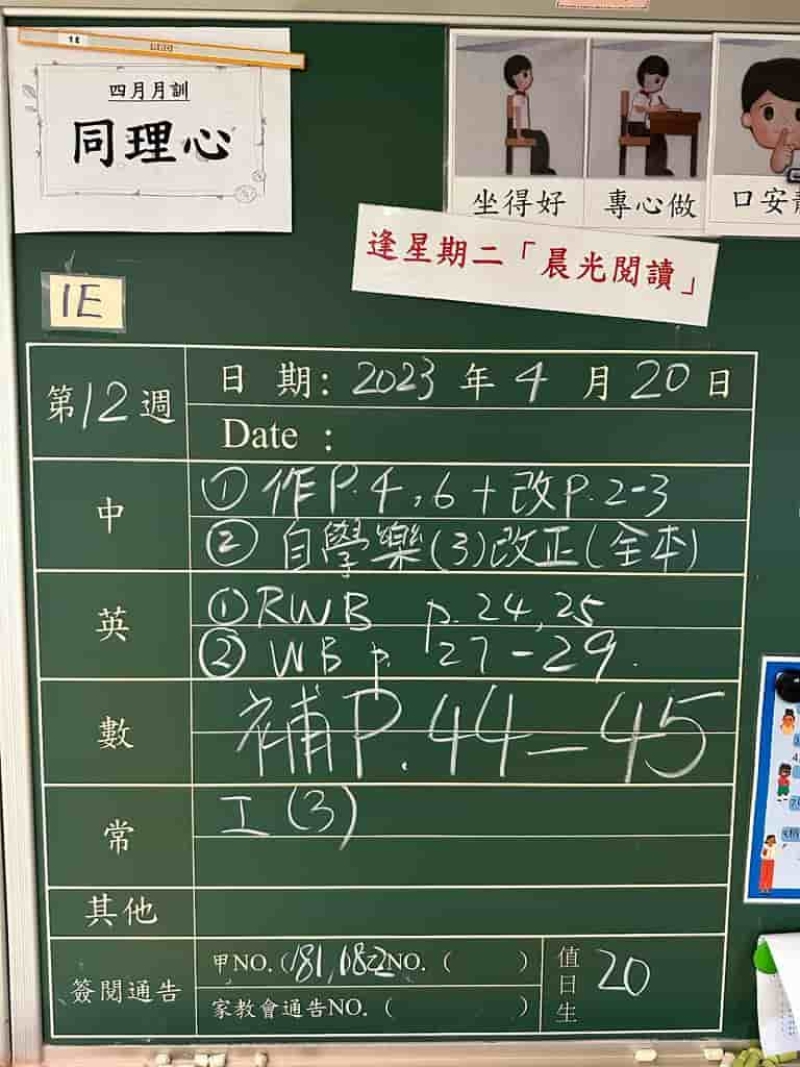 四月月訓
同理心
坐得好 專心做 口安
逢星期二「晨光閱讀」
1E
第12週
日期: 2023年4月20日
Date :
中
① 作P.4,6+改P.2-3
② 自學樂(3)改正(全本)
英
① RWB p.24,25
② WB p.27-29.
數
補P.44-45
常
工(3)
其他
簽閱通告
甲NO.(181,182 NO. ( )
家教會通告NO. ( )
值日生 20